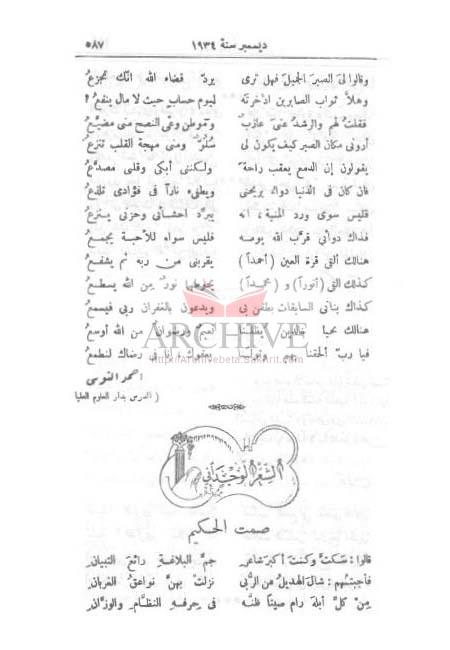 ديسمبر سنة ١٩٣٤ ٥٨٧
وقالوا لى الصبر الجميل فهل ترى يرد قضاء الله انك تجزع
وهلا ثواب الصابرين ادخرته ليوم حساب حيث لا مال ينفع !
فقلت لهم والرشد عنى عازب وموطن وعى النصح منى مضيع
أرونى مكان الصبر كيف يكون لى سلو ومنى مهجة القلب تنزع
يقولون إن الدمع يعقب راحة ولكننى أبكى وقلبى مصدع
فان كان فى الدنيا دواء يريحنى ويطفىء ناراً فى فؤادى تلذع
فليس سوى ورد المنية، انه يبرد احشائى وحزنى ينزع
فذاك دوائى قرب الله يومه فليس سواه للأحبة يجمع
هنالك ألقى قرة العين (أحمداً) يقربنى من ربه ثم يشفع
كذلك ألقى (أنوراً) و (محمداً) يحوطها نور من الله يسطع
كذاك بناتى السابقات يطفن بى ويدعون بالغفران ربى فيسمع
هنالك نحيا خالدين يظلنا نعيم ورضوان من الله أوسع
فيا رب ألحقنا بهم وتولنا بعفوك، إنا فى رضاك لنطمع
ARCHIVE
http://Archivebeta.Sakhrit.com
المدرس بدار العلوم العليا
الشعر الوجدانى
صمت الحكيم
قالوا : سكت وكنت أكبر شاعر جم البلاغة رائع التبيان
فأجبتهم : شال الهديل من الربى نزلت بهن نواعق الغربان
من كل أبله رام صيتاً ظنه فى حرفه النظام والوزان